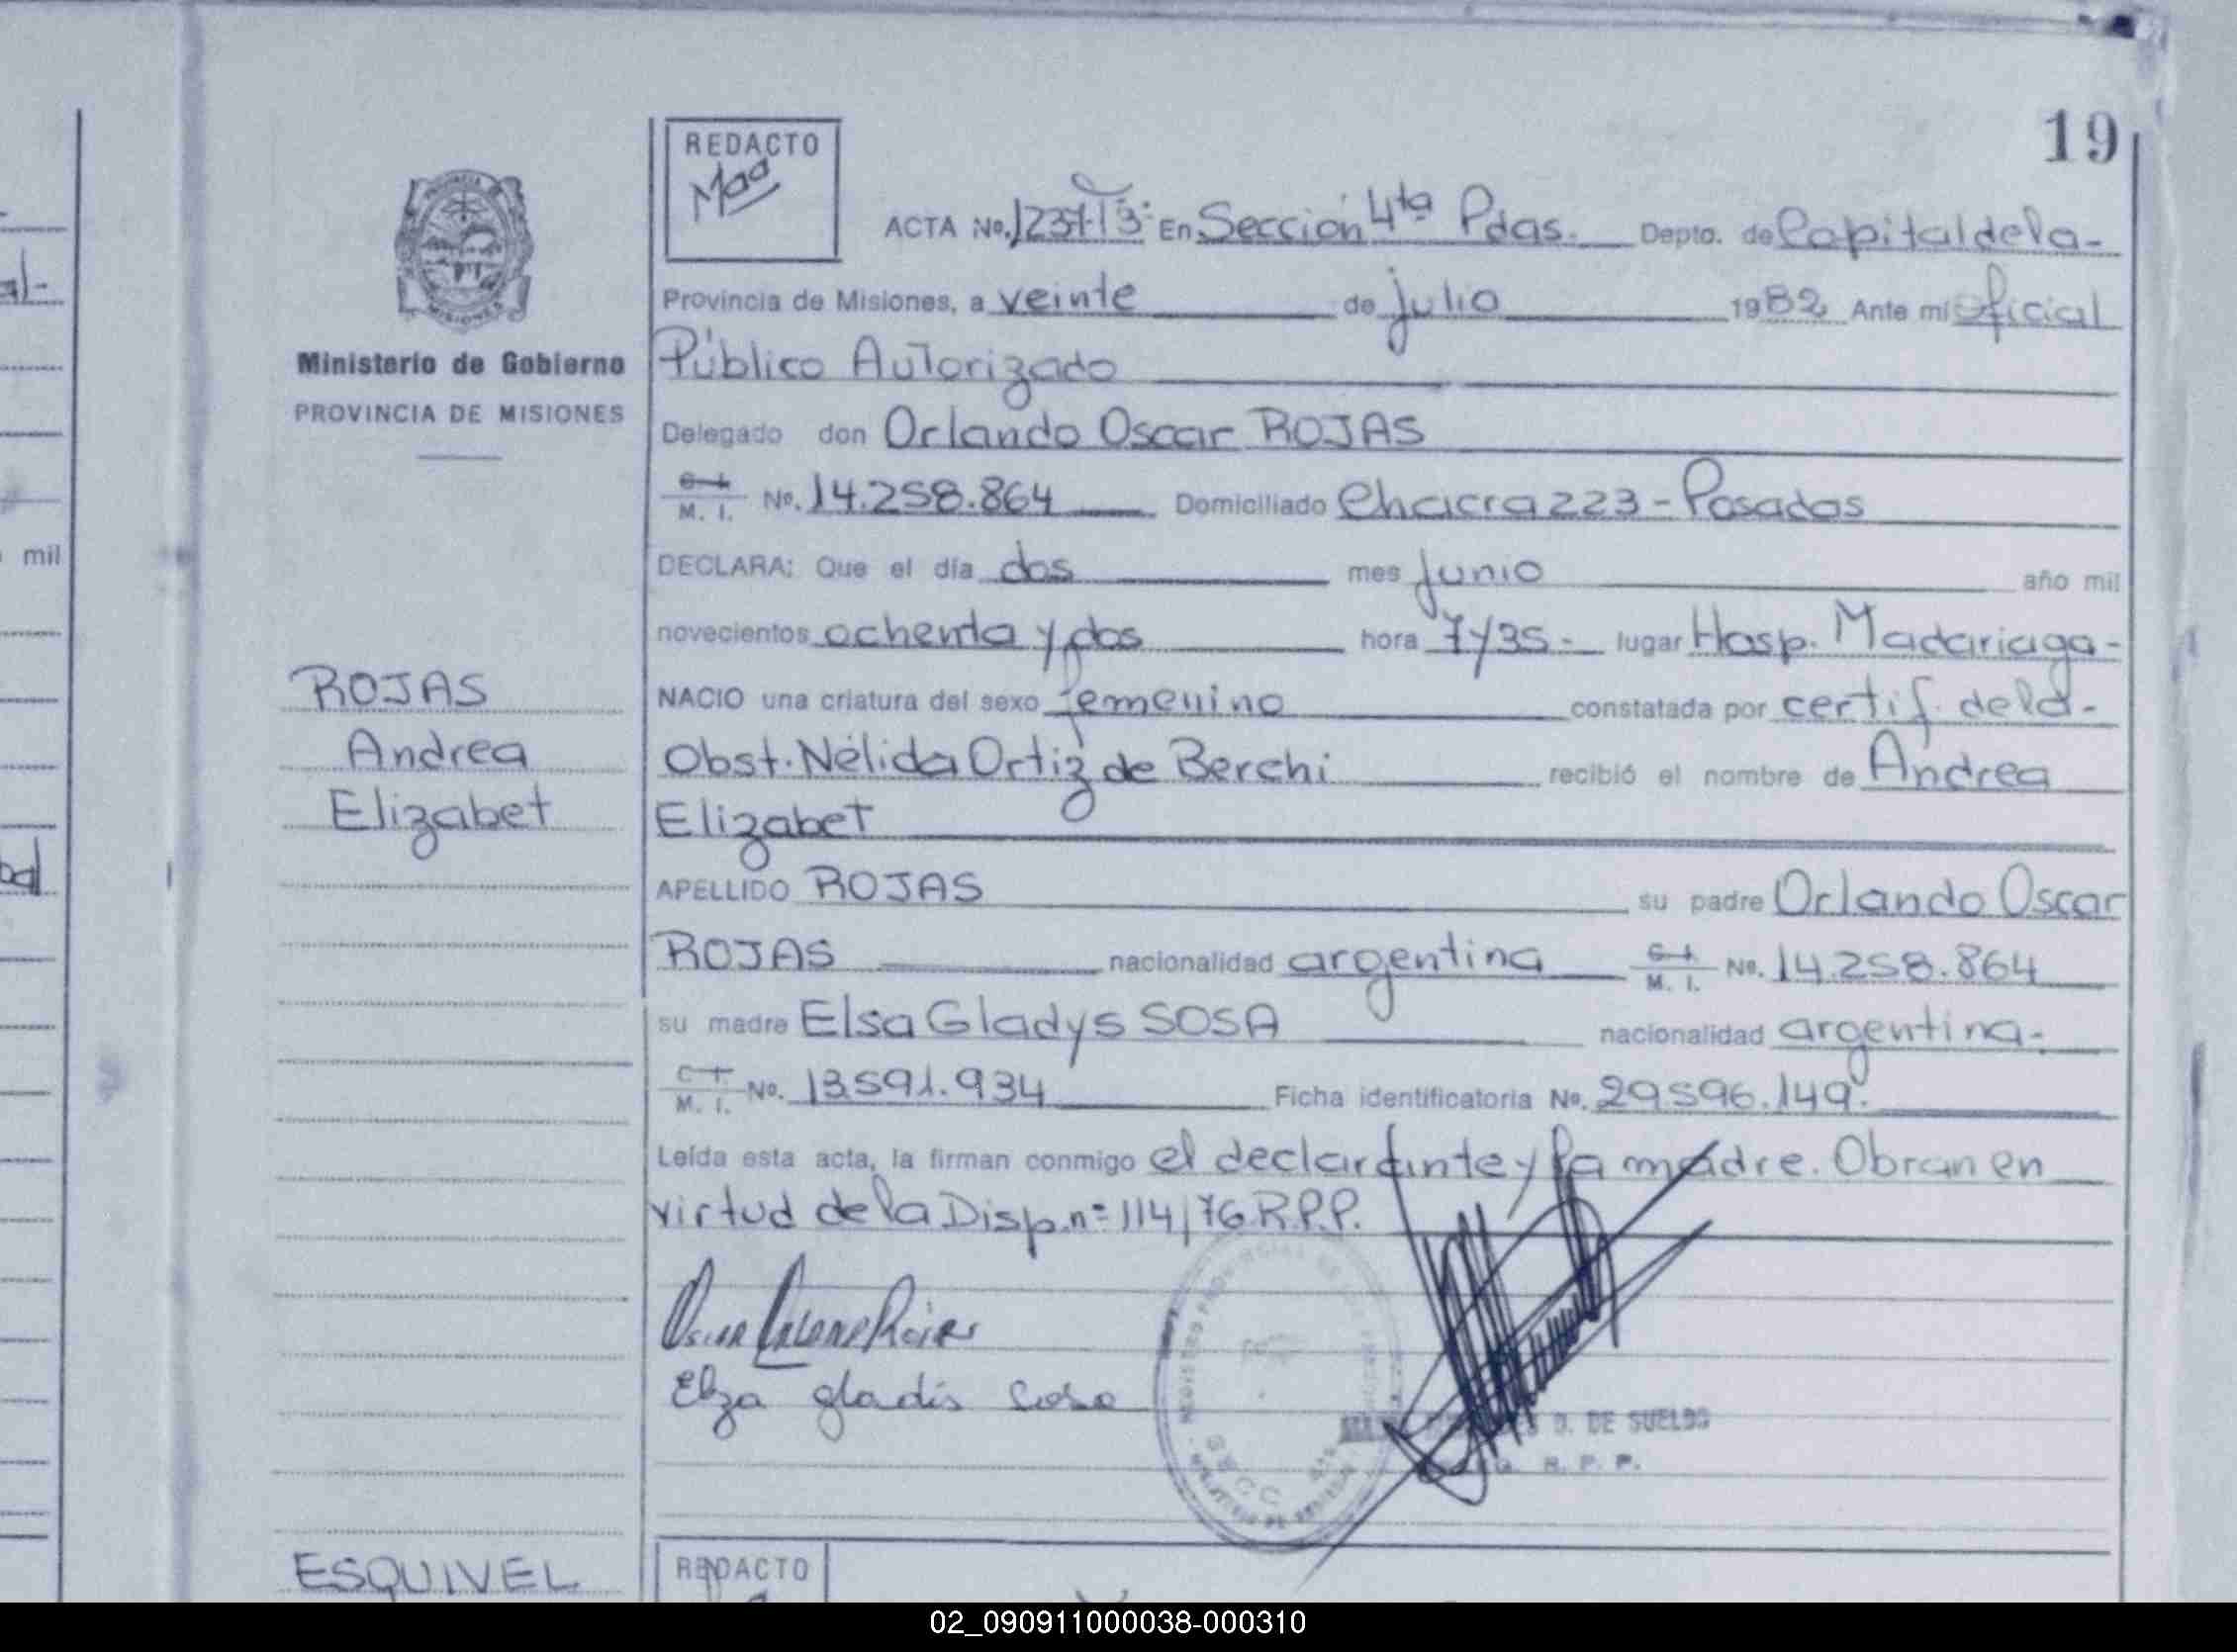 19
REDACTO
Maa
ACTA No. En Sección 4ta Pdas. Depto. de Capital de la-
Provincia de Misiones, a veinte de julio 1982 Ante mi Oficial
Ministerio de Gobierno
PROVINCIA DE MISIONES
Público Autorizado
Delegado don Orlando Oscar ROJAS
C. I. M. I. No. 14.258.864 Domiciliado Chacra 223 - Posadas
DECLARA: Que el día dos mes junio año mil
novecientos ochenta y dos hora 7y35- lugar Hosp. Madariaga-
NACIO una criatura del sexo femenino constatada por certif. de la-
Obst. Nélida Ortiz de Berchi recibió el nombre de Andrea
Elizabet
ROJAS
Andrea
Elizabet
APELLIDO ROJAS su padre Orlando Oscar
ROJAS nacionalidad argentina C. I. M. I. No. 14.258.864
su madre Elsa Gladys SOSA nacionalidad argentina-
C. I. M. I. No. 13.591.934 Ficha identificatoria No. 29.596.149.
Leída esta acta, la firman conmigo el declarante y la madre. Obran en
virtud de la Disp. nº 114/76 R.P.P.
Elza gladis Sosa
D. DE SUELDO
R. P. P.
ESQUIVEL
REDACTO
mil
02_090911000038-000310